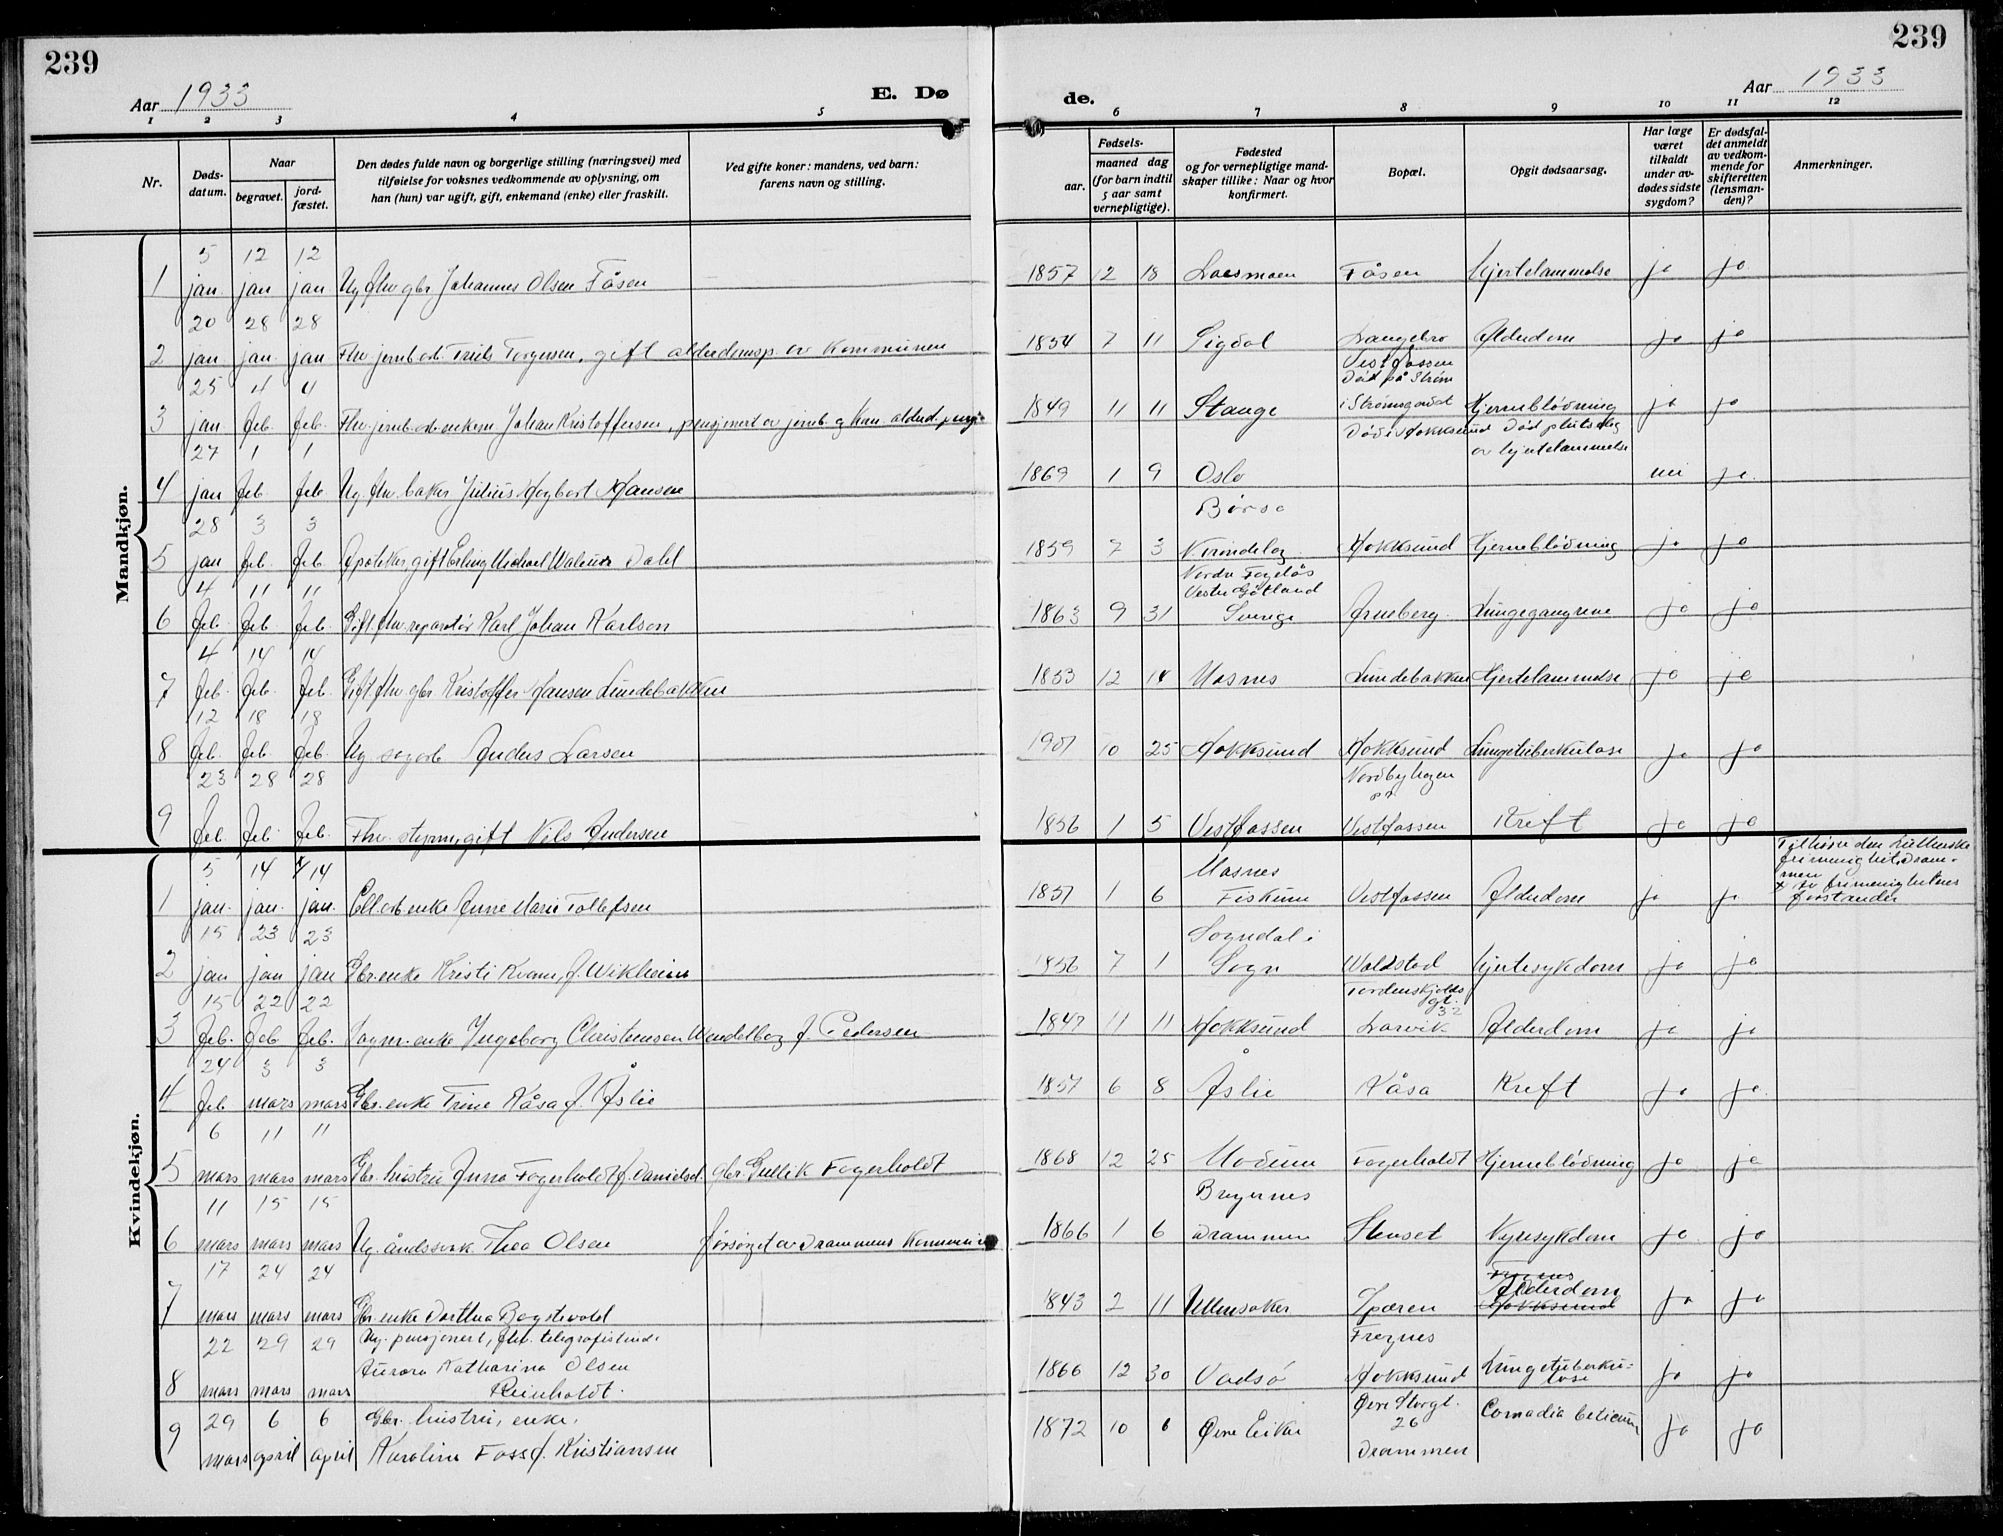 239
239
Aar 1933
E. Dø
de.
Aar 1933
1 2 3 4 5
6 7 8 9 10 11 12
Nr.
Døds-datum.
Naar
begravet.
jord-fæstet.
Den dødes fulde navn og borgerlige stilling (næringsvei) med
tilføielse for voksnes vedkommende av oplysning, om
han (hun) var ugift, gift, enkemand (enke) eller fraskilt.
Ved gifte koner: mandens, ved barn:
farens navn og stilling.
Fødsels-
aar.
maaned dag
(for barn indtil
5 aar samt
vernepligtige).
Fødested
og for vernepligtige mand-
skaper tillike: Naar og hvor
konfirmert.
Bopæl.
Opgit dødsaarsag.
Har læge
været
tilkaldt
under av-
dødes sidste
sygdom?
Er dødsfal-
det anmeldt
av vedkom-
mende for
skifteretten
(lensman-
den)?
Anmerkninger.
Mandkjøn.
1 5 jan. 12 jan 12 jan Ug. fhv. gbr. Johannes Olsen Fåsen 1857 12 18 Fåsen Hjertelammelse ja ja
2 20 jan 28 jan. 28 jan Fhv. jernb.arb. Truls Torgersen, gift alderdomsp. av kommunen 1854 7 11 Sigdal Langebro Vestfossen Alderdom ja ja
3 25 jan 4 feb. 4 feb. Fhv. jernb.arb. enkem. Johan Kristoffersen, pensjonert av jernb. og 1849 11 11 Stange Død på Strøm i Strømsgodset Hjerneblødning ja ja
4 27 jan 1 feb 1 feb Ug. fhv. baker Julius Hansen 1869 1 9 Oslo Død i Hokksund Død plutselig av hjertelammelse nei ja.
5 28 jan 3 feb. 3 feb Apoteker, gift Erling Michael Dahl 1859 7 3 Børsa N. Trøndelag Hokksund Hjerneblødning ja ja
6 4 feb. 11 feb 11 feb. Gift fhv. reparatør Karl Johan Karlson 1863 9 31 Nordre Vester Götland Sverige Arneberg Lungegangrene ja ja
7 4 feb. 14 feb. 14 feb. Gift fhv. gbr. Kristoffer Hansen Lundebakken 1853 12 14 Lundebakken Hjertelammelse ja ja
8 12 feb. 18 feb. 18 feb. Ug. Anders Larsen 1901 10 25 Hokksund Hokksund Lungetuberkulose ja ja
9 23 feb. 28 feb 28 feb. Fhv. gift Nils Andersen 1856 1 5 Vestfossen Nordbyhagen Vestfossen Kreft ja ja
Kvindekjøn.
1 5 jan. 14 jan. 14 jan. enke Anne Marie Tollefsen 1851 1 6 Fiskum Vestfossen Alderdom ja ja Tilhører den lutherske frimenighet, Drammen x av frimenighetens forstander
2 15 jan 23 jan 23 jan Gbr.enke Kristi Kvam, f. Wikheim 1856 7 1 Sogndal i Sogn Waldstad Hjertesykdom ja ja
3 15 feb. 22 feb 22 feb. enke Ingeborg Christensen Wendelborg f. Pedersen 1847 11 11 Hokksund Tordenskjolds gt. 32 Larvik Alderdom ja ja
4 24 feb 3 mars 3 mars Gbr. enke Trine Kåsa f. Åslie 1851 6 8 Åslie Kåsa Kreft ja ja.
5 6 mars 11 mars 11 mars Gbr. hustru Anna Fagerholdt f. Danielsd. gbr. Gullik Fagerholdt 1868 12 25 Modum Fagerholdt Hjerneblødning ja ja
6 11 mars 15 mars 15 mars Ug. åndssvak Thea Olsen forsørget av Drammens kommune 1866 1 6 Bragernes Drammen Stenset Nyresykdom ja ja
7 17 mars 24 mars 24 mars Gbr. enke Dorthea Bogstevold 1843 2 11 Ullensaker Spæren Alderdom Hokksund ja ja
8 22 mars 29 mars 29 mars Ug. pensjonert, fhv. telegrafistinde
Aurora Katharina Olsen
Reinholdt. 1866 12 30 Vadsø Frognes Hokksund Lungetuberkulose ja ja
9 29 mars 6 april 6 april Gbr. hustru, enke,
Karoline Foss f. Kristiansen 1872 10 6 Øvre Eiker Øvre Storgt. 26 Drammen ja ja